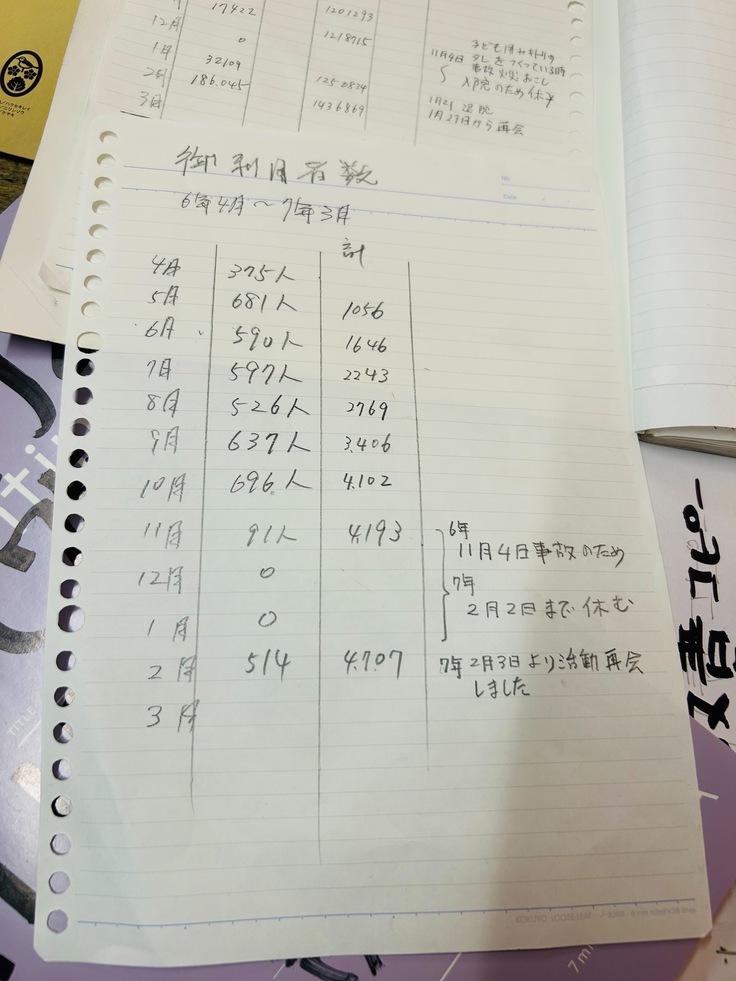 12月 17422 1201293
1月 0 1218715
2月 32109
3月 186.045 1250824
1436869
11月4日
事故 火災 おこし
入院のため休み
1月21 退院
1月27日から再会
御利用者数
6年4月～7年3月
計
4月 375人
5月 681人 1056
6月 590人 1646
7月 597人 2243
8月 526人 2769
9月 637人 3.406
10月 696人 4.102
11月 91人 4.193
12月 0
1月 0
2月 514 4.707
3月
6年
11月4日事故のため
7年
2月2日まで休む
7年2月3日より治動再会
しました
TITLE